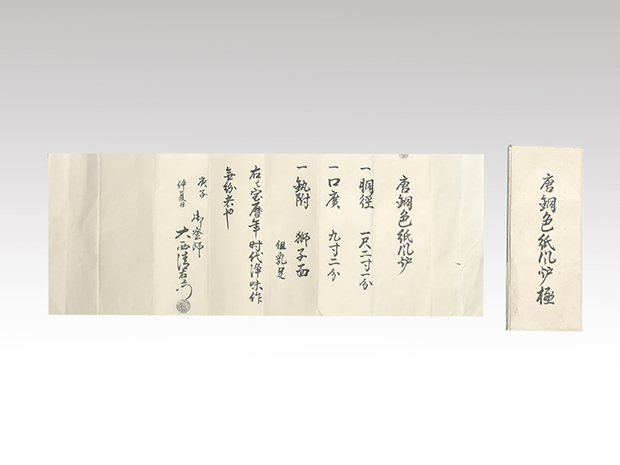 唐銅色紙風炉
一 胴径 一尺二寸一分
一 口廣 九寸二分
一 執附 獅子面
但乳足
右之宝暦年時代浄味作
無紛者也
庚子
仲夏日 御釜師
大西清右衛門
唐銅色紙風炉極